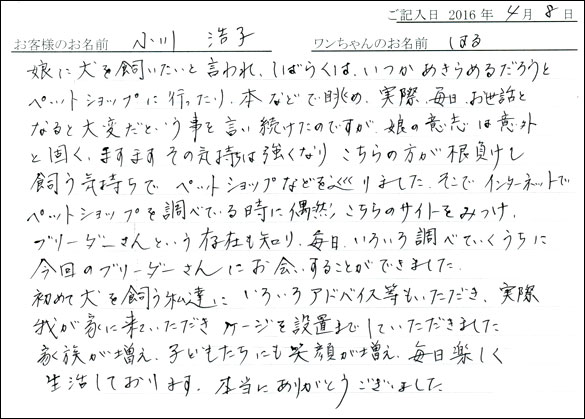 ご記入日 2016 年 4 月 8 日
お客様のお名前 小川 浩子 ワンちゃんのお名前 はる
娘に犬を飼いたいと言われ、しばらくは、いつかあきらめるだろうと
ペットショップに行ったり、本などで眺め、実際、毎日お世話と
なると大変だという事を言い続けたのですが、娘の意志は意外
と固く、ますますその気持ちは強くなり こちらの方が根負けし
飼う気持ちで ペットショップなどを巡りました。そこで インターネットで
ペットショップを調べている時に偶然、こちらのサイトをみつけ、
ブリーダーさんという存在も知り、毎日、いろいろ調べていくうちに
今回のブリーダーさんにお会いすることができました。
初めて犬を飼う私達に いろいろアドバイス等もいただき、実際
我が家に来ていただき ケージを設置までしていただきました
家族が増え、子どもたちにも笑顔が増え、毎日楽しく
生活しております。本当にありがとうございました。